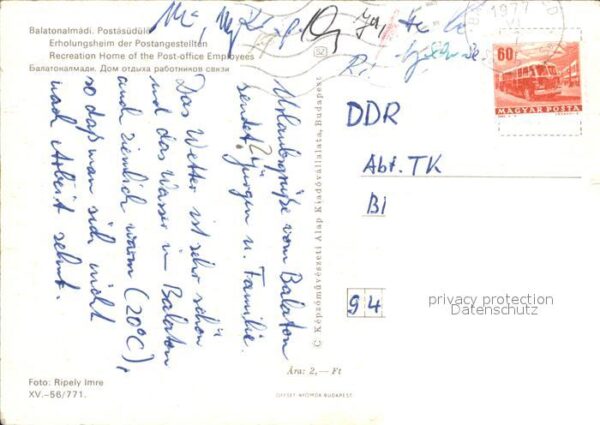 Balatonalmádi. Postásüdülő
Erholungsheim der Postangestellten
Recreation Home of the Post-office Employees
Балатоналмади. Дом отдыха работников связи
Urlaubsgrüße vom Balaton
sendet Jürgen u. Familie.
Das Wetter ist sehr schön
und das Wasser im Balaton
auch ziemlich warm (20°C),
so daß man sich nicht
nach Arbeit sehnt.
Foto: Ripely Imre
XV.–56/771.
© Képzőművészeti Alap Kiadóvállalata, Budapest
Ára: 2,— Ft
OFFSET NYOMDA BUDAPEST
1977
60f
MAGYAR POSTA
DDR
Abt. TK
BI
94
privacy protection
Datenschutz